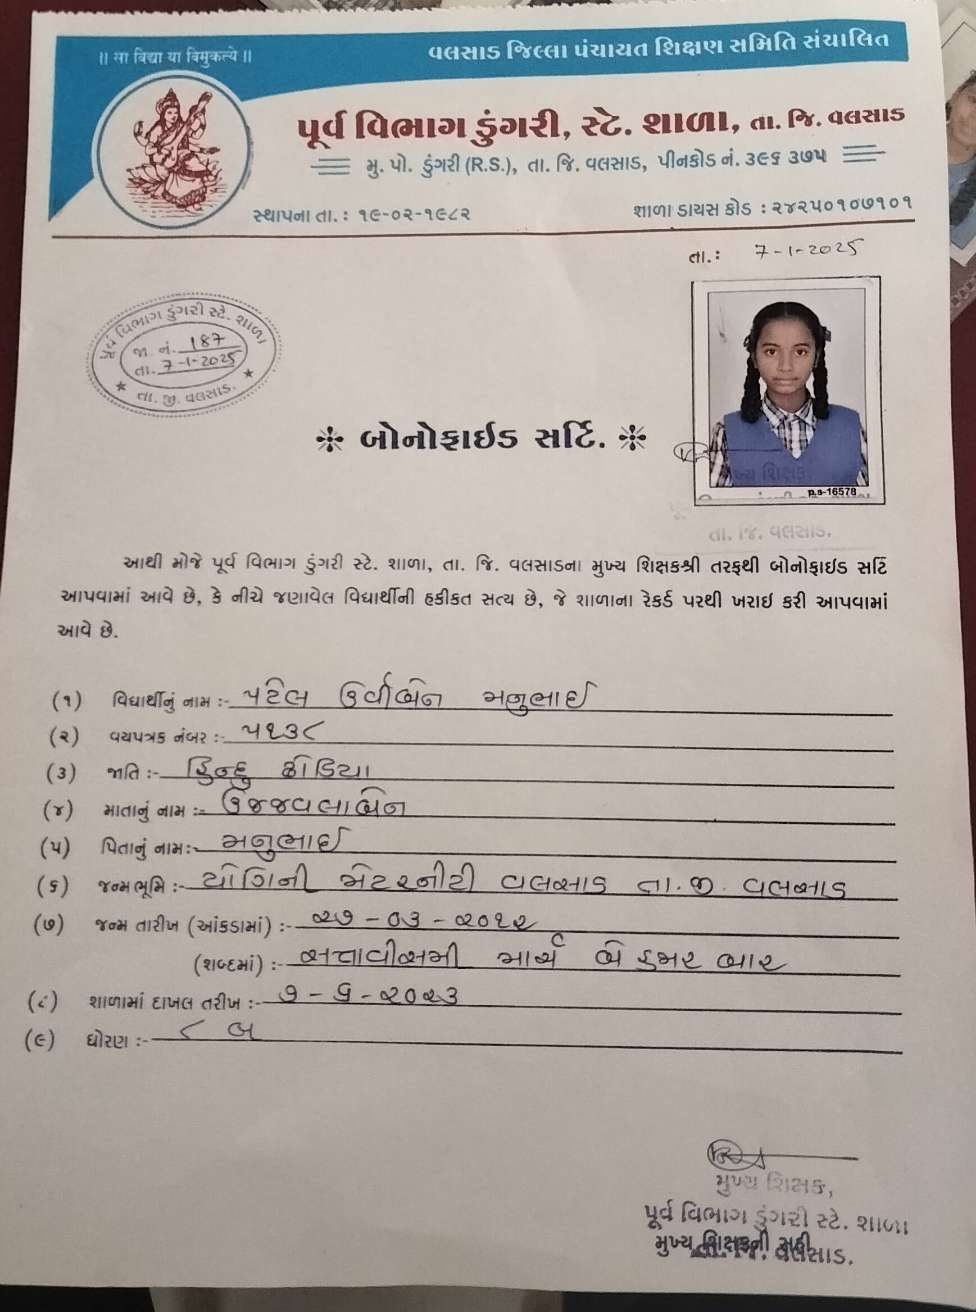 ॥ सा विद्या या विमुक्तये ॥
વલસાડ જિલ્લા પંચાયત શિક્ષણ સમિતિ સંચાલિત
પૂર્વ વિભાગ ડુંગરી, સ્ટે. શાળા, તા. જિ. વલસાડ
મુ. પો. ડુંગરી (R.S.), તા. જિ. વલસાડ, પીનકોડ નં. ૩૯૬ ૩૭૫
સ્થાપના તા. : ૧૯-૦૨-૧૯૮૨ શાળા ડાયસ કોડ : ૨૪૨૫૦૧૦૭૧૦૧
તા. : 7-1-2025
પૂર્વ વિભાગ ડુંગરી સ્ટે. શાળા
જા. નં. 187
તા. 7-1-2025
તા. જી. વલસાડ.
p.s-16578
તા. જિ. વલસાડ.
બોનોફાઈડ સર્ટિ.
આથી મોજે પૂર્વ વિભાગ ડુંગરી સ્ટે. શાળા, તા. જિ. વલસાડના મુખ્ય શિક્ષકશ્રી તરફથી બોનોફાઈડ સર્ટિ
આપવામાં આવે છે, કે નીચે જણાવેલ વિદ્યાર્થીની હકીકત સત્ય છે, જે શાળાના રેકર્ડ પરથી ખરાઇ કરી આપવામાં
આવે છે.
(૧) વિદ્યાર્થીનું નામ :- પટેલ ઉર્વીબેન મનુભાઈ
(૨) વયપત્રક નંબર :- ૫૧૩૮
(૩) જાતિ :- હિન્દુ ધોડિયા
(૪) માતાનું નામ :- ઉજ્જવલાબેન
(૫) પિતાનું નામ:- મનુભાઈ
(૬) જન્મભૂમિ :- યોગિની મેટરનીટી વલસાડ તા. જી. વલસાડ
(૭) જન્મ તારીખ (આંકડામાં) :- ૨૭-૦૩-૨૦૧૨
(શબ્દમાં) :- સત્તાવીસમી માર્ચ બે હજાર બાર
(૮) શાળામાં દાખલ તારીખ :- ૭-૬-૨૦૨૩
(૯) ધોરણ :- ૮ બ
મુખ્ય શિક્ષક,
પૂર્વ વિભાગ ડુંગરી સ્ટે. શાળા
મુખ્ય શિક્ષકની સહી
તા. જિ. વલસાડ.